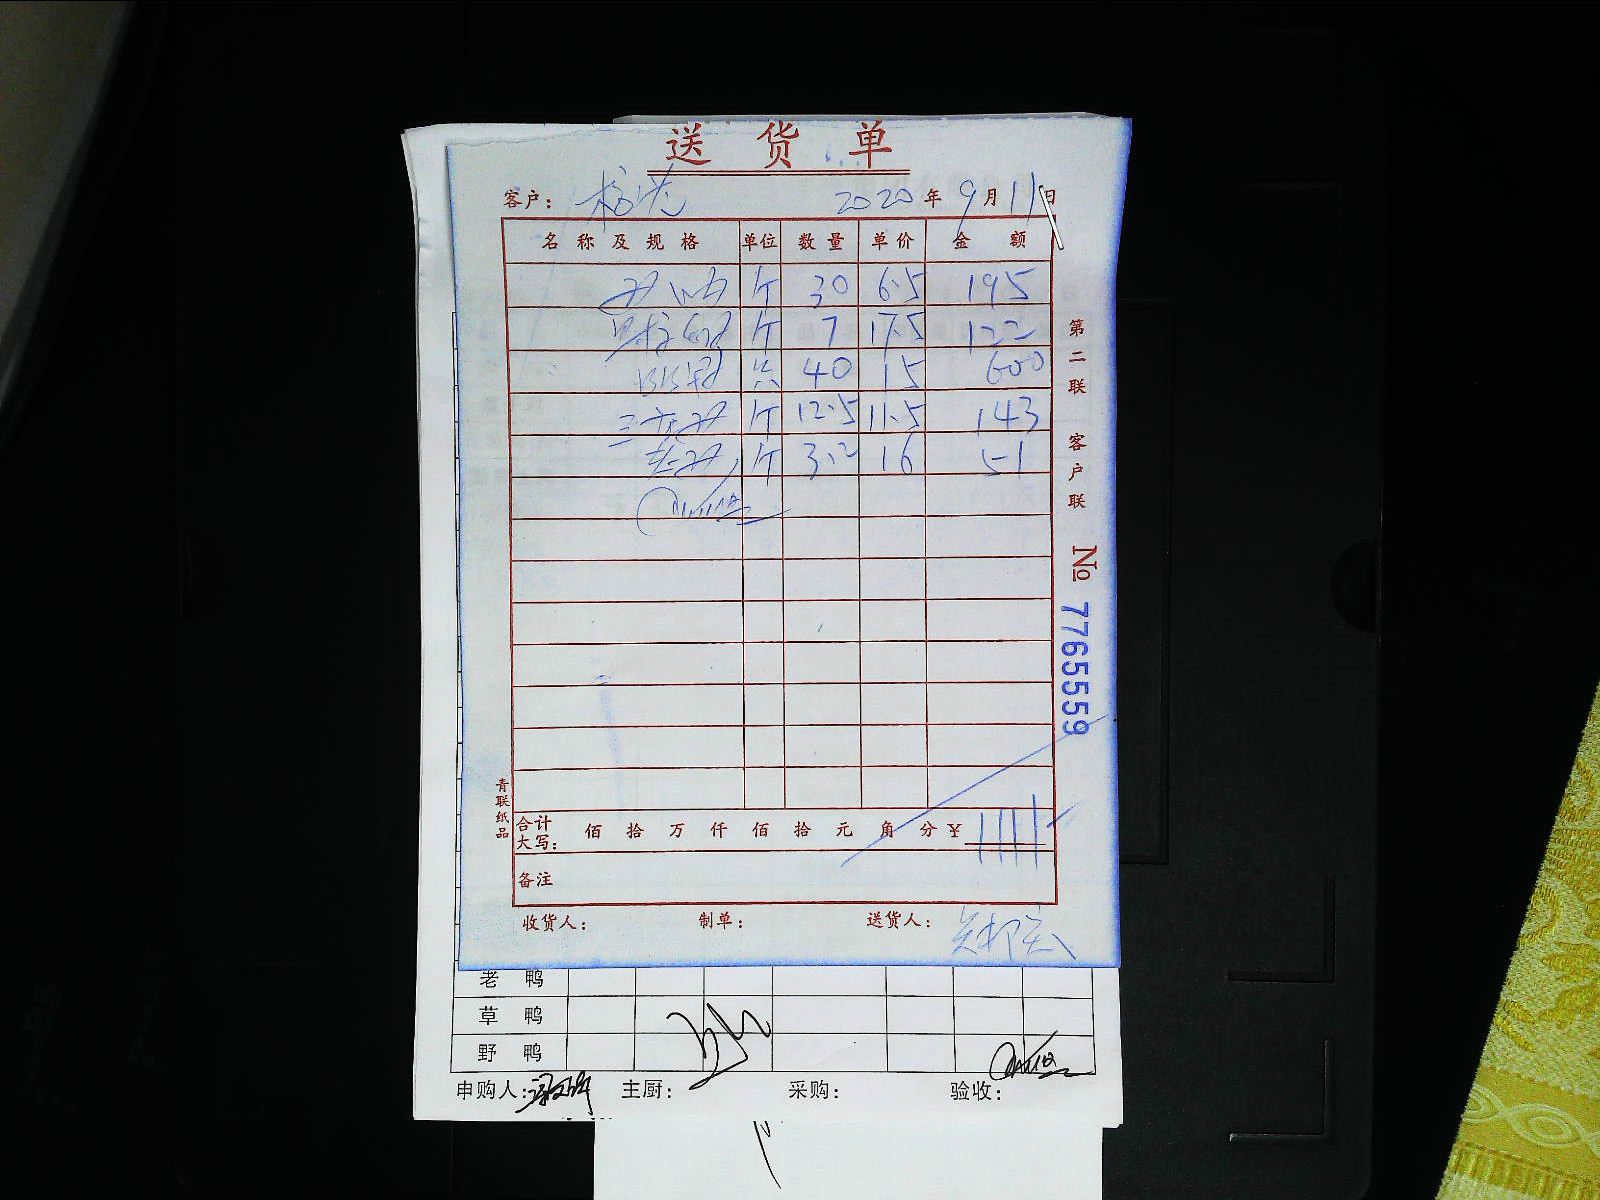 送货单
客户： 2020年9月11日
名称及规格 单位 数量 单价 金额
斤 30 6.5 195
斤 7 17.5 122
只 40 15 600
三黄鸡 斤 12.5 11.5 143
斤 3.2 16 51
合计大写： 佰 拾 万 仟 佰 拾 元 角 分 ¥ 1111
备注
收货人： 制单： 送货人：
第二联 客户联
№ 7765559
青联纸品
老鸭
草鸭
野鸭
申购人： 主厨： 采购： 验收：